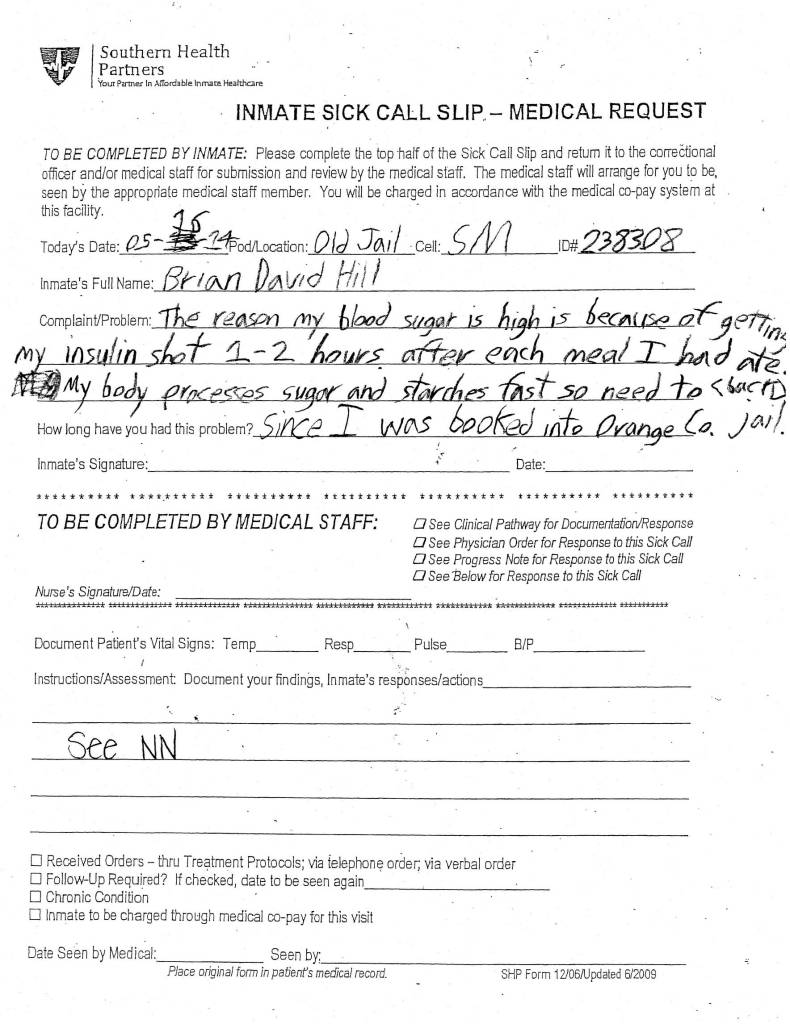 Southern Health
Partners
Your Partner In Affordable Inmate Healthcare
INMATE SICK CALL SLIP – MEDICAL REQUEST
TO BE COMPLETED BY INMATE: Please complete the top half of the Sick Call Slip and return it to the correctional
officer and/or medical staff for submission and review by the medical staff. The medical staff will arrange for you to be,
seen by the appropriate medical staff member. You will be charged in accordance with the medical co-pay system at
this facility.
Today's Date: 05-15-14 Pod/Location: Old Jail Cell: SM ID# 238308
Inmate's Full Name: Brian David Hill
Complaint/Problem: The reason my blood sugar is high is because of getting
my insulin shot 1-2 hours after each meal I had ate.
My body processes sugar and starches fast so need to <back>
How long have you had this problem? Since I was booked into Orange Co. Jail.
Inmate's Signature: Date:
********** ********** ********** ********** ********** ********** **********
TO BE COMPLETED BY MEDICAL STAFF:
☐ See Clinical Pathway for Documentation/Response
☐ See Physician Order for Response to this Sick Call
☐ See Progress Note for Response to this Sick Call
☐ See Below for Response to this Sick Call
Nurse's Signature/Date:
Document Patient's Vital Signs: Temp Resp Pulse B/P
Instructions/Assessment: Document your findings, Inmate's responses/actions
See NN
☐ Received Orders – thru Treatment Protocols; via telephone order; via verbal order
☐ Follow-Up Required? If checked, date to be seen again
☐ Chronic Condition
☐ Inmate to be charged through medical co-pay for this visit
Date Seen by Medical: Seen by:
Place original form in patient's medical record. SHP Form 12/06/Updated 6/2009